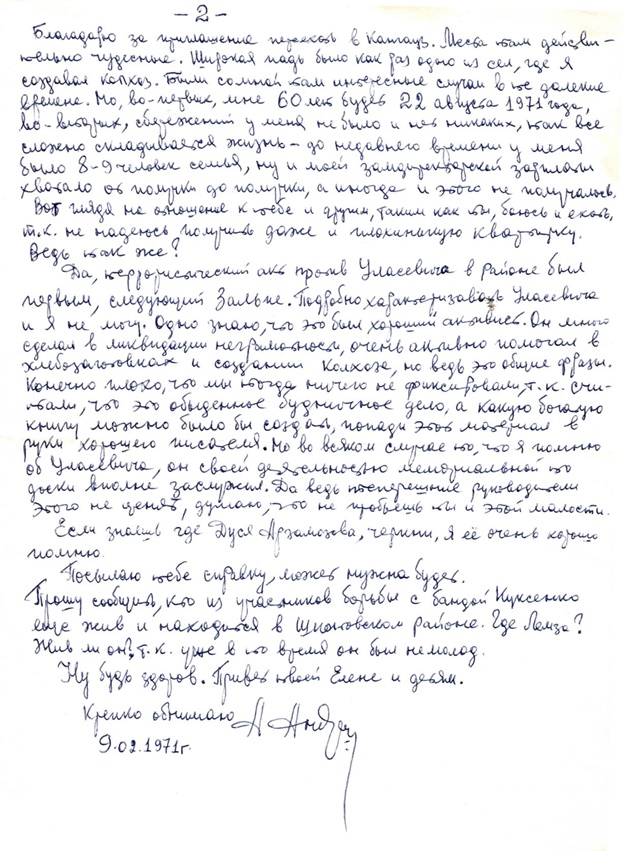 - 2 -
Благодарю за приглашение переехать в Кангауз. Места там действи-
тельно чудесные. Широкая падь было как раз одно из сел, где я
создавал колхоз. Были со мной там интересные случаи в те далекие
времена. Но, во-первых, мне 60 лет будет 22 августа 1971 года,
во-вторых, сбережений у меня не было и нет никаких, так все
сложено складывается жизнь - до недавнего времени у меня
было 8-9 человек семья, ну и моей замдиректорской зарплаты
хватало от получки до получки, а иногда и этого не получалось.
Вот глядя на отношение к тебе и другим, таким как ты, боюсь и ехать,
т.к. не надеюсь получить даже и плохинькую квартирку.
Ведь так же?
Да, террористический акт против Уласевича в районе был
первым, следующий Зальпе. Подробно характеризовать Уласевича
и я не могу. Одно знаю, что это был хороший активист. Он много
сделал в ликвидации неграмотности, очень активно помогал в
хлебозаготовках и создании колхоза, но ведь это общие фразы.
Конечно плохо, что мы тогда ничего не фиксировали, т.к. счи-
тали, что это обыденное будничное дело, а какую богатую
книгу можно было бы создать, попади этот материал в
руки хорошего писателя. Но во всяком случае то, что я помню
об Уласевича, он своей деятельностью мемориальной то
доски вполне заслужил. Да ведь теперешние руководители
этого не ценят, думаю, что не пробьешь ты и этой малости.
Если знаешь где Дуся Арзамазова, черкни, я её очень хорошо
помню.
Посылаю тебе справку, может нужна будет.
Прошу сообщить, кто из участников борьбы с бандой Куксенко
еще жив и находится в Шкотовском районе. Где Лемза?
Жив ли он?, т.к. уже в то время он был немолод.
Ну будь здоров. Привет твоей Елене и детям.
Крепко обнимаю
9.02.1971г.